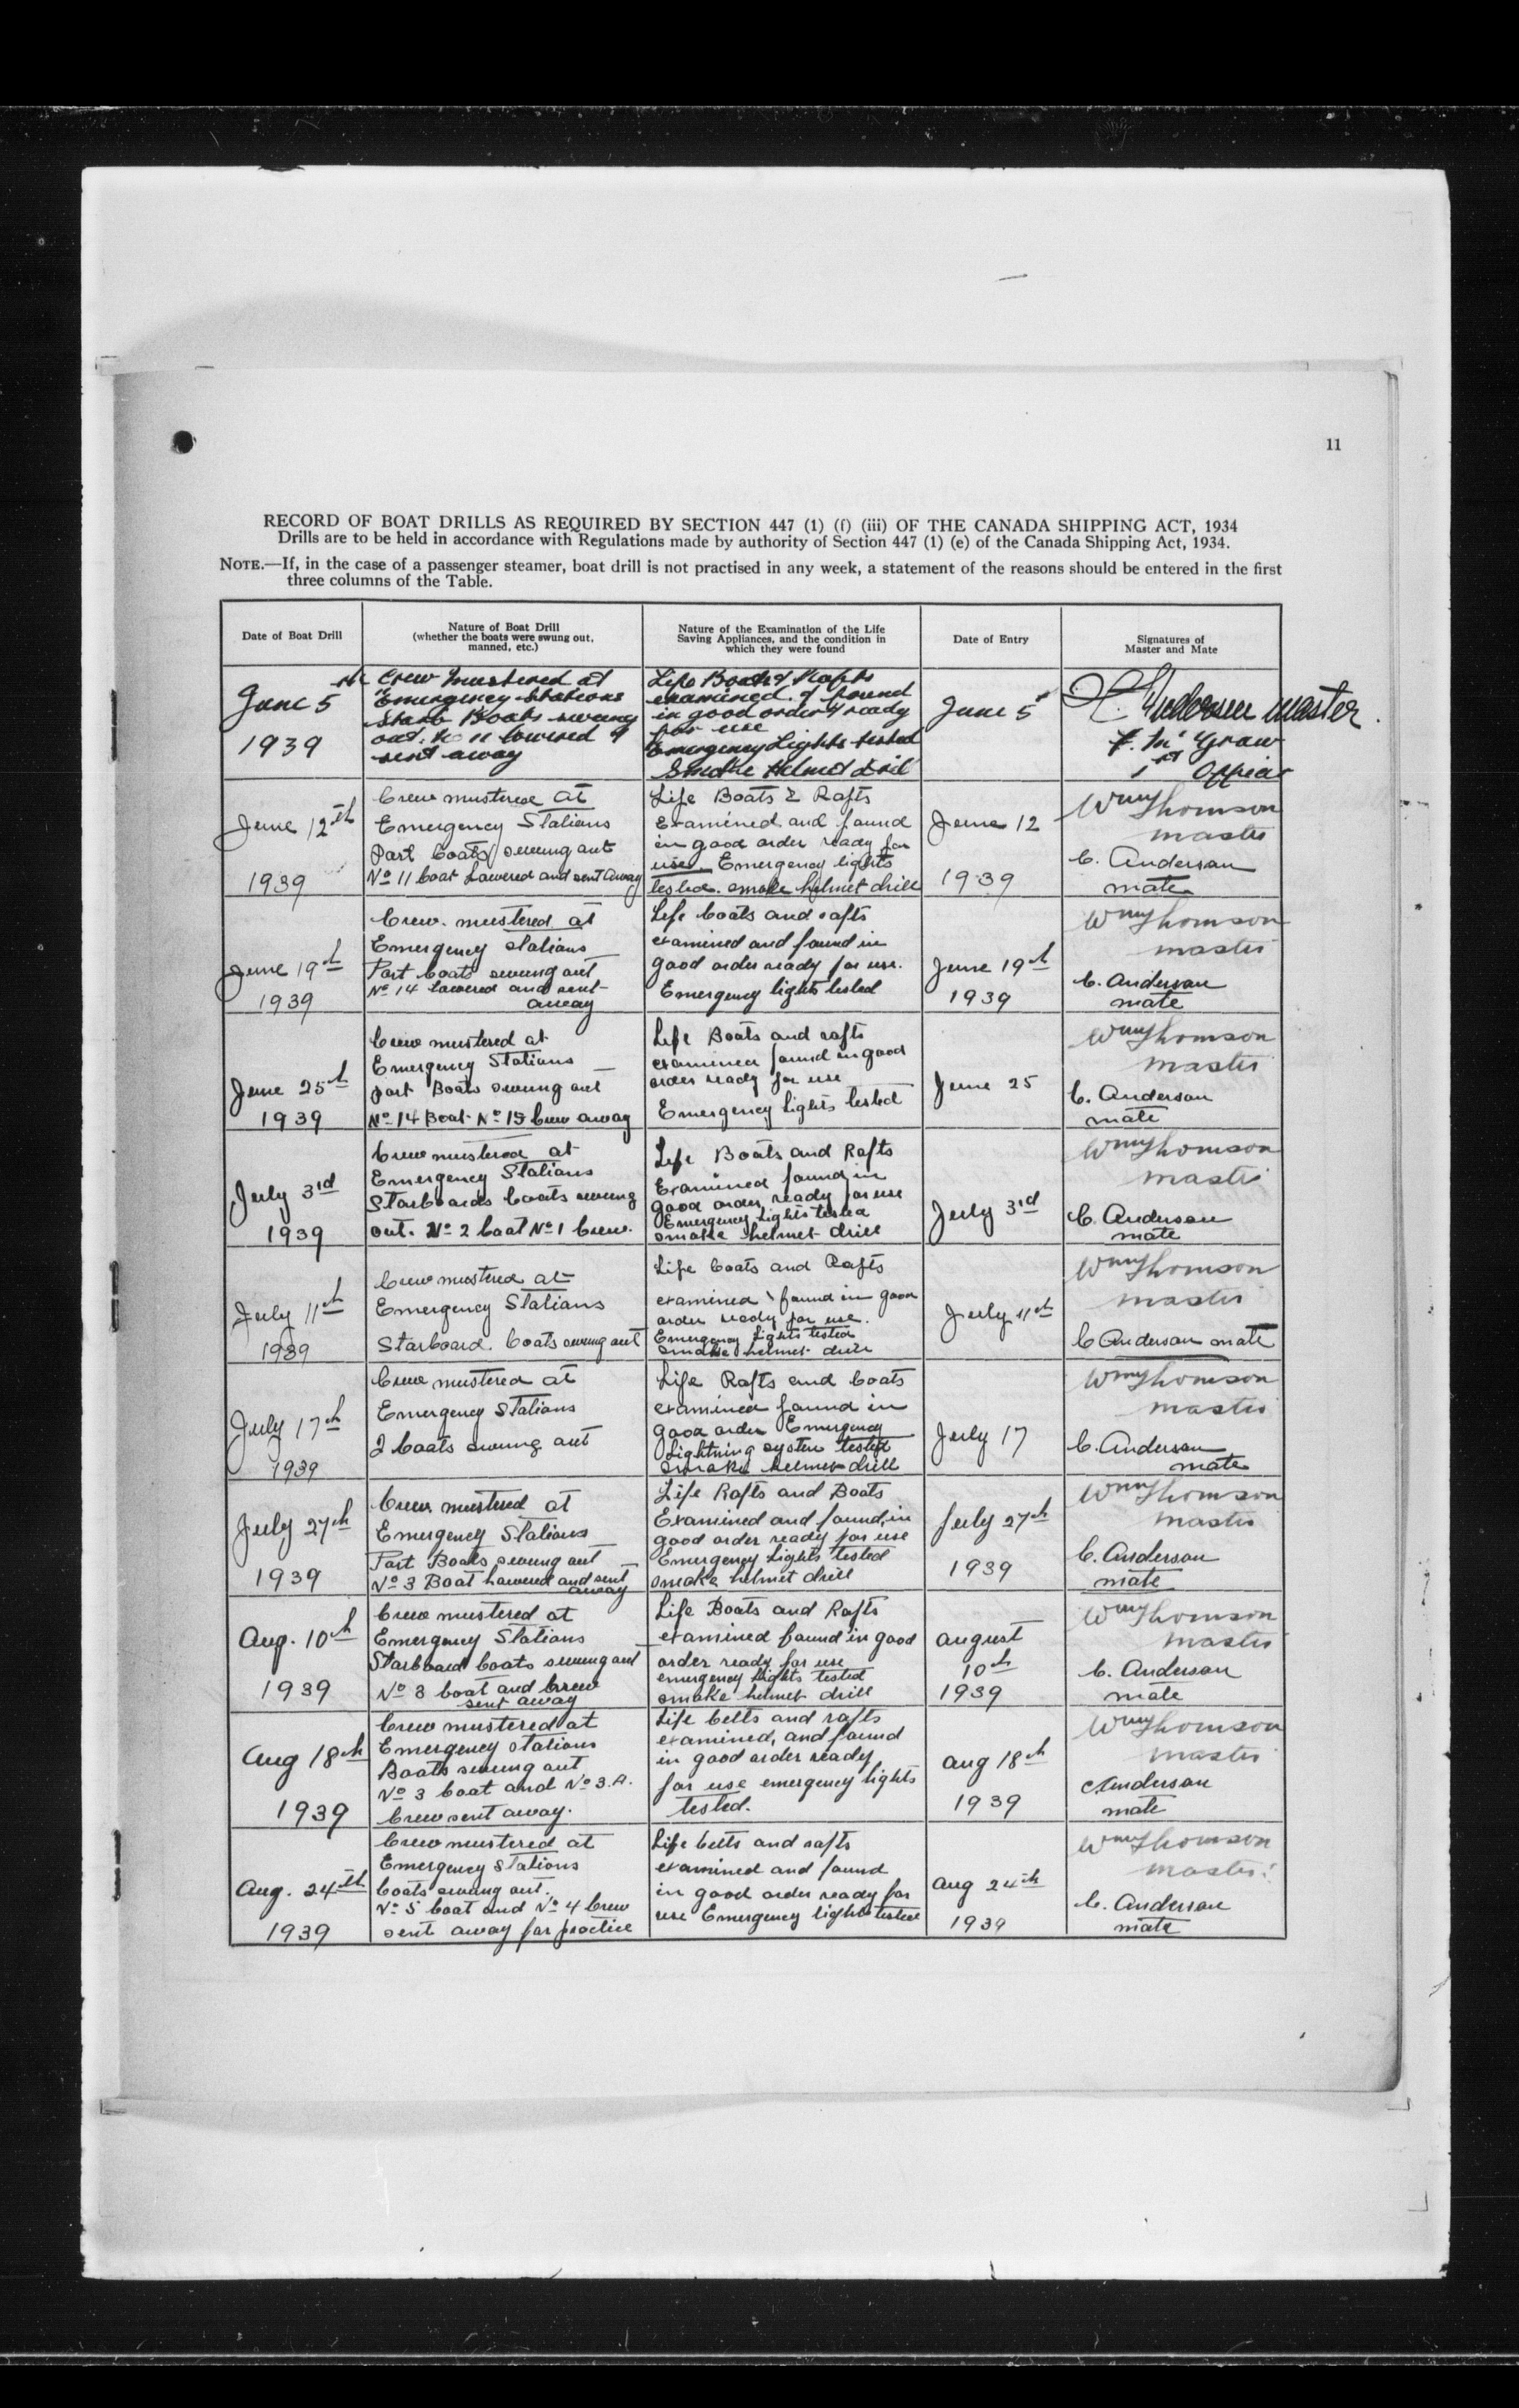 11
RECORD OF BOAT DRILLS AS REQUIRED BY SECTION 447 (1) (f) (iii) OF THE CANADA SHIPPING ACT, 1934
Drills are to be held in accordance with Regulations made by authority of Section 447 (1) (e) of the Canada Shipping Act, 1934.
NOTE.—If, in the case of a passenger steamer, boat drill is not practised in any week, a statement of the reasons should be entered in the first
three columns of the Table.
Date of Boat Drill
Nature of Boat Drill
(whether the boats were swung out,
manned, etc.)
Nature of the Examination of the Life
Saving Appliances, and the condition in
which they were found
Date of Entry
Signatures of
Master and Mate
June 5th
1939
Crew mustered at
Emergency Stations
Starb Boats swung
out. No 11 lowered &
sent away
Life Boats & Rafts
examined & found
in good order & ready
for use
Emergency Lights tested
Smoke Helmet Dril
June 5
Master
1st Officer
June 12th
1939
Crew mustered at
Emergency Stations
Port boats swung out
No 11 boat Lowered and sent away
Life Boats & Rafts
Examined and found
in good order ready for
use. Emergency lights
tested. smoke helmet drill
June 12
1939
Wm Thomson
master
C. Anderson
mate
June 19th
1939
Crew. mustered at
Emergency stations
Port boats swung out
No 14 lowered and sent
away
Life boats and rafts
examined and found in
good order ready for use.
Emergency lights tested
June 19th
1939
Wm Thomson
master
C. Anderson
mate
June 25th
1939
Crew mustered at
Emergency Stations
port Boats swung out
No 14 Boat No 13 Crew away
Life Boats and rafts
examined found in good
order ready for use
Emergency Lights tested
June 25
Wm Thomson
master
C. Anderson
mate
July 3rd
1939
Crew mustered at
Emergency Stations
Starboards boats swung
out. No 2 boat No 1 Crew.
Life Boats and Rafts
Examined found in
good order, ready for use
Emergency Lights tested
smoke helmet drill
July 3rd
Wm Thomson
master
C. Anderson
mate
July 11th
1939
Crew mustered at
Emergency Stations
Starboard. boats swung out
Life boats and Rafts
examined & found in good
order ready for use.
Emergency Lights tested
smoke helmet drill
July 11th
Wm Thomson
master
C Anderson mate
July 17th
1939
Crew mustered at
Emergency Stations
2 boats swung out
Life Rafts and boats
examined found in
good order Emergency
Lightning system tested
smoke helmet drill
July 17
Wm Thomson
master
C. Anderson
mate
July 27th
1939
Crew mustered at
Emergency Stations
Port Boats swung out
No 3 Boat lowered and sent
away
Life Rafts and Boats
Examined and found in
good order ready for use
Emergency Lights tested
smoke helmet drill
July 27th
1939
Wm Thomson
master
C. Anderson
mate
Aug. 10th
1939
Crew mustered at
Emergency Stations
Starboard boats swung out
No 3 boat and Crew
sent away
Life Boats and Rafts
examined found in good
order ready for use
emergency lights tested
smoke helmet drill
august
10th
1939
Wm Thomson
master
C. Anderson
mate
Aug 18th
1939
Crew mustered at
Emergency stations
Boats swung out
No 3 boat and No 3.A.
Crew sent away.
Life belts and rafts
examined, and found
in good order ready
for use emergency lights
tested.
aug 18th
1939
Wm Thomson
master
C Anderson
mate
Aug. 24th
1939
Crew mustered at
Emergency Stations
boats swung out.
No 5 boat and No 4 Crew
sent away for practice
Life belts and rafts
examined and found
in good order ready for
use Emergency lights tested
Aug 24th
1939
Wm Thomson
master
C. Anderson
mate